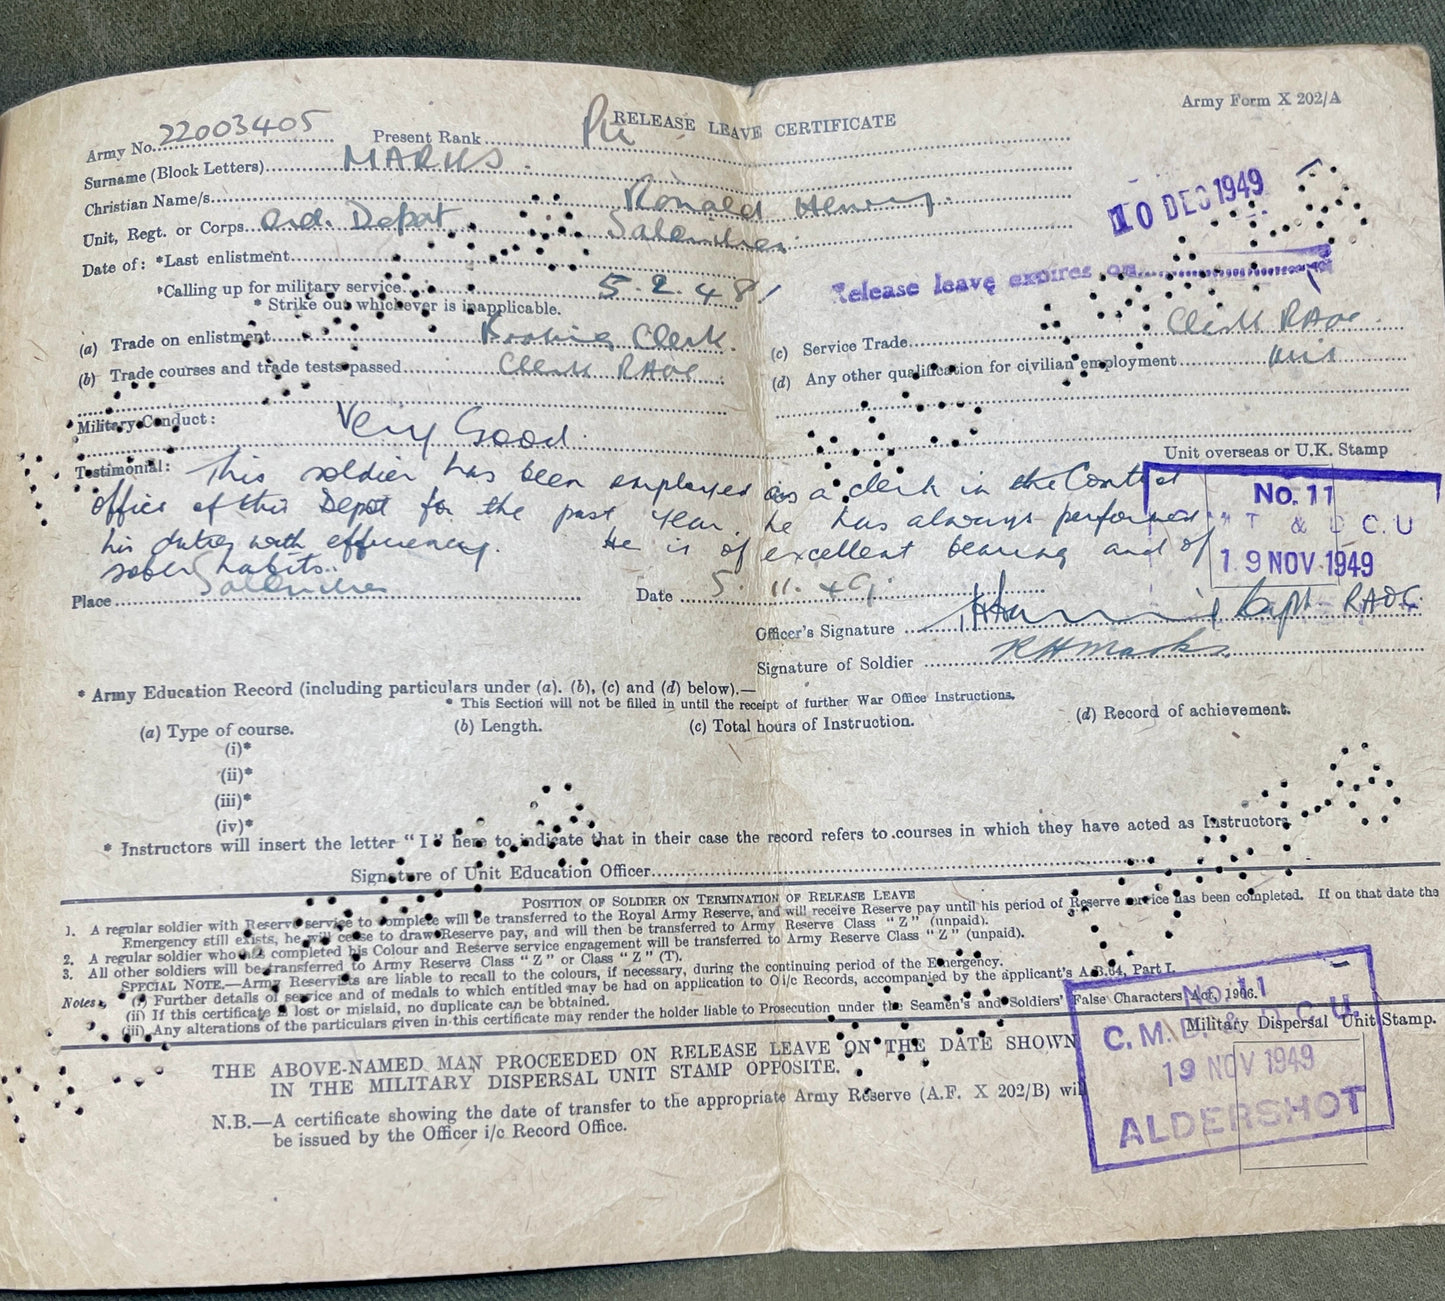 Army Form X 202/A
RELEASE LEAVE CERTIFICATE
Army No. 22003405 Present Rank Pte
Surname (Block Letters) MARKS
Christian Name/s Ronald Henry
Unit, Regt. or Corps Ord. Depot
Date of: *Last enlistment
*Calling up for military service 5.2.48
* Strike out whichever is inapplicable.
10 DEC 1949
Release leave expires on
(a) Trade on enlistment Clerk
(b) Trade courses and trade tests passed Clerk RAOC
(c) Service Trade Clerk RAOC
(d) Any other qualification for civilian employment
Military Conduct: Very Good
Testimonial: This soldier has been employed as a clerk in the Control
office of this Depot for the past year, he has always performed
his duties with efficiency. He is of excellent bearing and of
sober habits.
Unit overseas or U.K. Stamp
No. 11
C.U
19 NOV 1949
Place
Date 5.11.49
Officer's Signature Capt RAOC
Signature of Soldier RHMarks
* Army Education Record (including particulars under (a), (b), (c) and (d) below).—
* This Section will not be filled in until the receipt of further War Office Instructions.
(a) Type of course. (b) Length. (c) Total hours of Instruction. (d) Record of achievement.
(i)*
(ii)*
(iii)*
(iv)*
* Instructors will insert the letter "I" here to indicate that in their case the record refers to courses in which they have acted as Instructors.
Signature of Unit Education Officer
POSITION OF SOLDIER ON TERMINATION OF RELEASE LEAVE
1. A regular soldier with Reserve service to complete will be transferred to the Royal Army Reserve, and will receive Reserve pay until his period of Reserve service has been completed. If on that date the
Emergency still exists, he will cease to draw Reserve pay, and will then be transferred to Army Reserve Class "Z" (unpaid).
2. A regular soldier who has completed his Colour and Reserve service engagement will be transferred to Army Reserve Class "Z" (unpaid).
3. All other soldiers will be transferred to Army Reserve Class "Z" or Class "Z" (T).
SPECIAL NOTE.—Army Reservists are liable to recall to the colours, if necessary, during the continuing period of the Emergency.
Notes. (i) Further details of service and of medals to which entitled may be had on application to O i/c Records, accompanied by the applicant's A.B.64, Part I.
(ii) If this certificate is lost or mislaid, no duplicate can be obtained.
(iii) Any alterations of the particulars given in this certificate may render the holder liable to Prosecution under the Seamen's and Soldiers' False Characters Act, 1906.
THE ABOVE-NAMED MAN PROCEEDED ON RELEASE LEAVE ON THE DATE SHOWN
IN THE MILITARY DISPERSAL UNIT STAMP OPPOSITE.
N.B.—A certificate showing the date of transfer to the appropriate Army Reserve (A.F. X 202/B) will
be issued by the Officer i/c Record Office.
Military Dispersal Unit Stamp.
No. 11
C.M.D. & D.C.U.
19 NOV 1949
ALDERSHOT